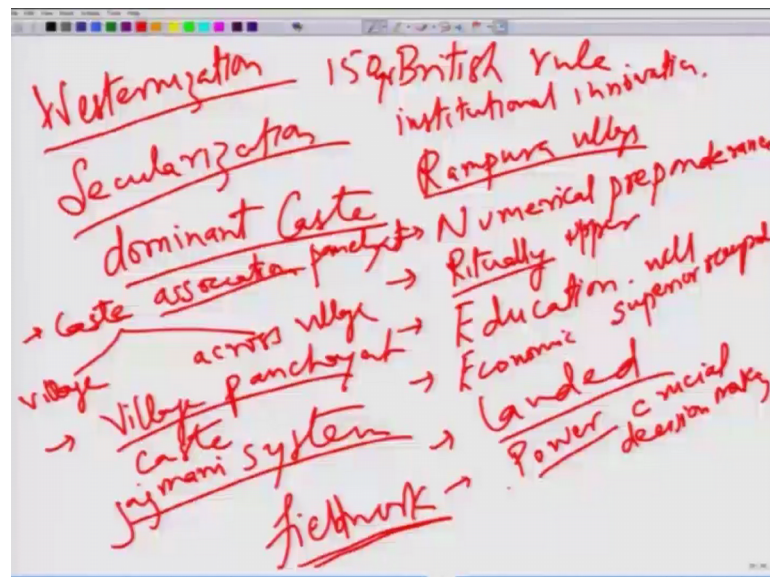 Westernization 150 yr British rule
institutional innovation.
Secularization
Rampura village
dominant Caste
→ Numerical preponderance
→ Caste association panchyat
→ Ritually upper
village across village
→ Education. well
→ Village panchayat
→ Economic superior
caste
→ Landed
jajmani system
→ Power crucial
decision making
fieldwork